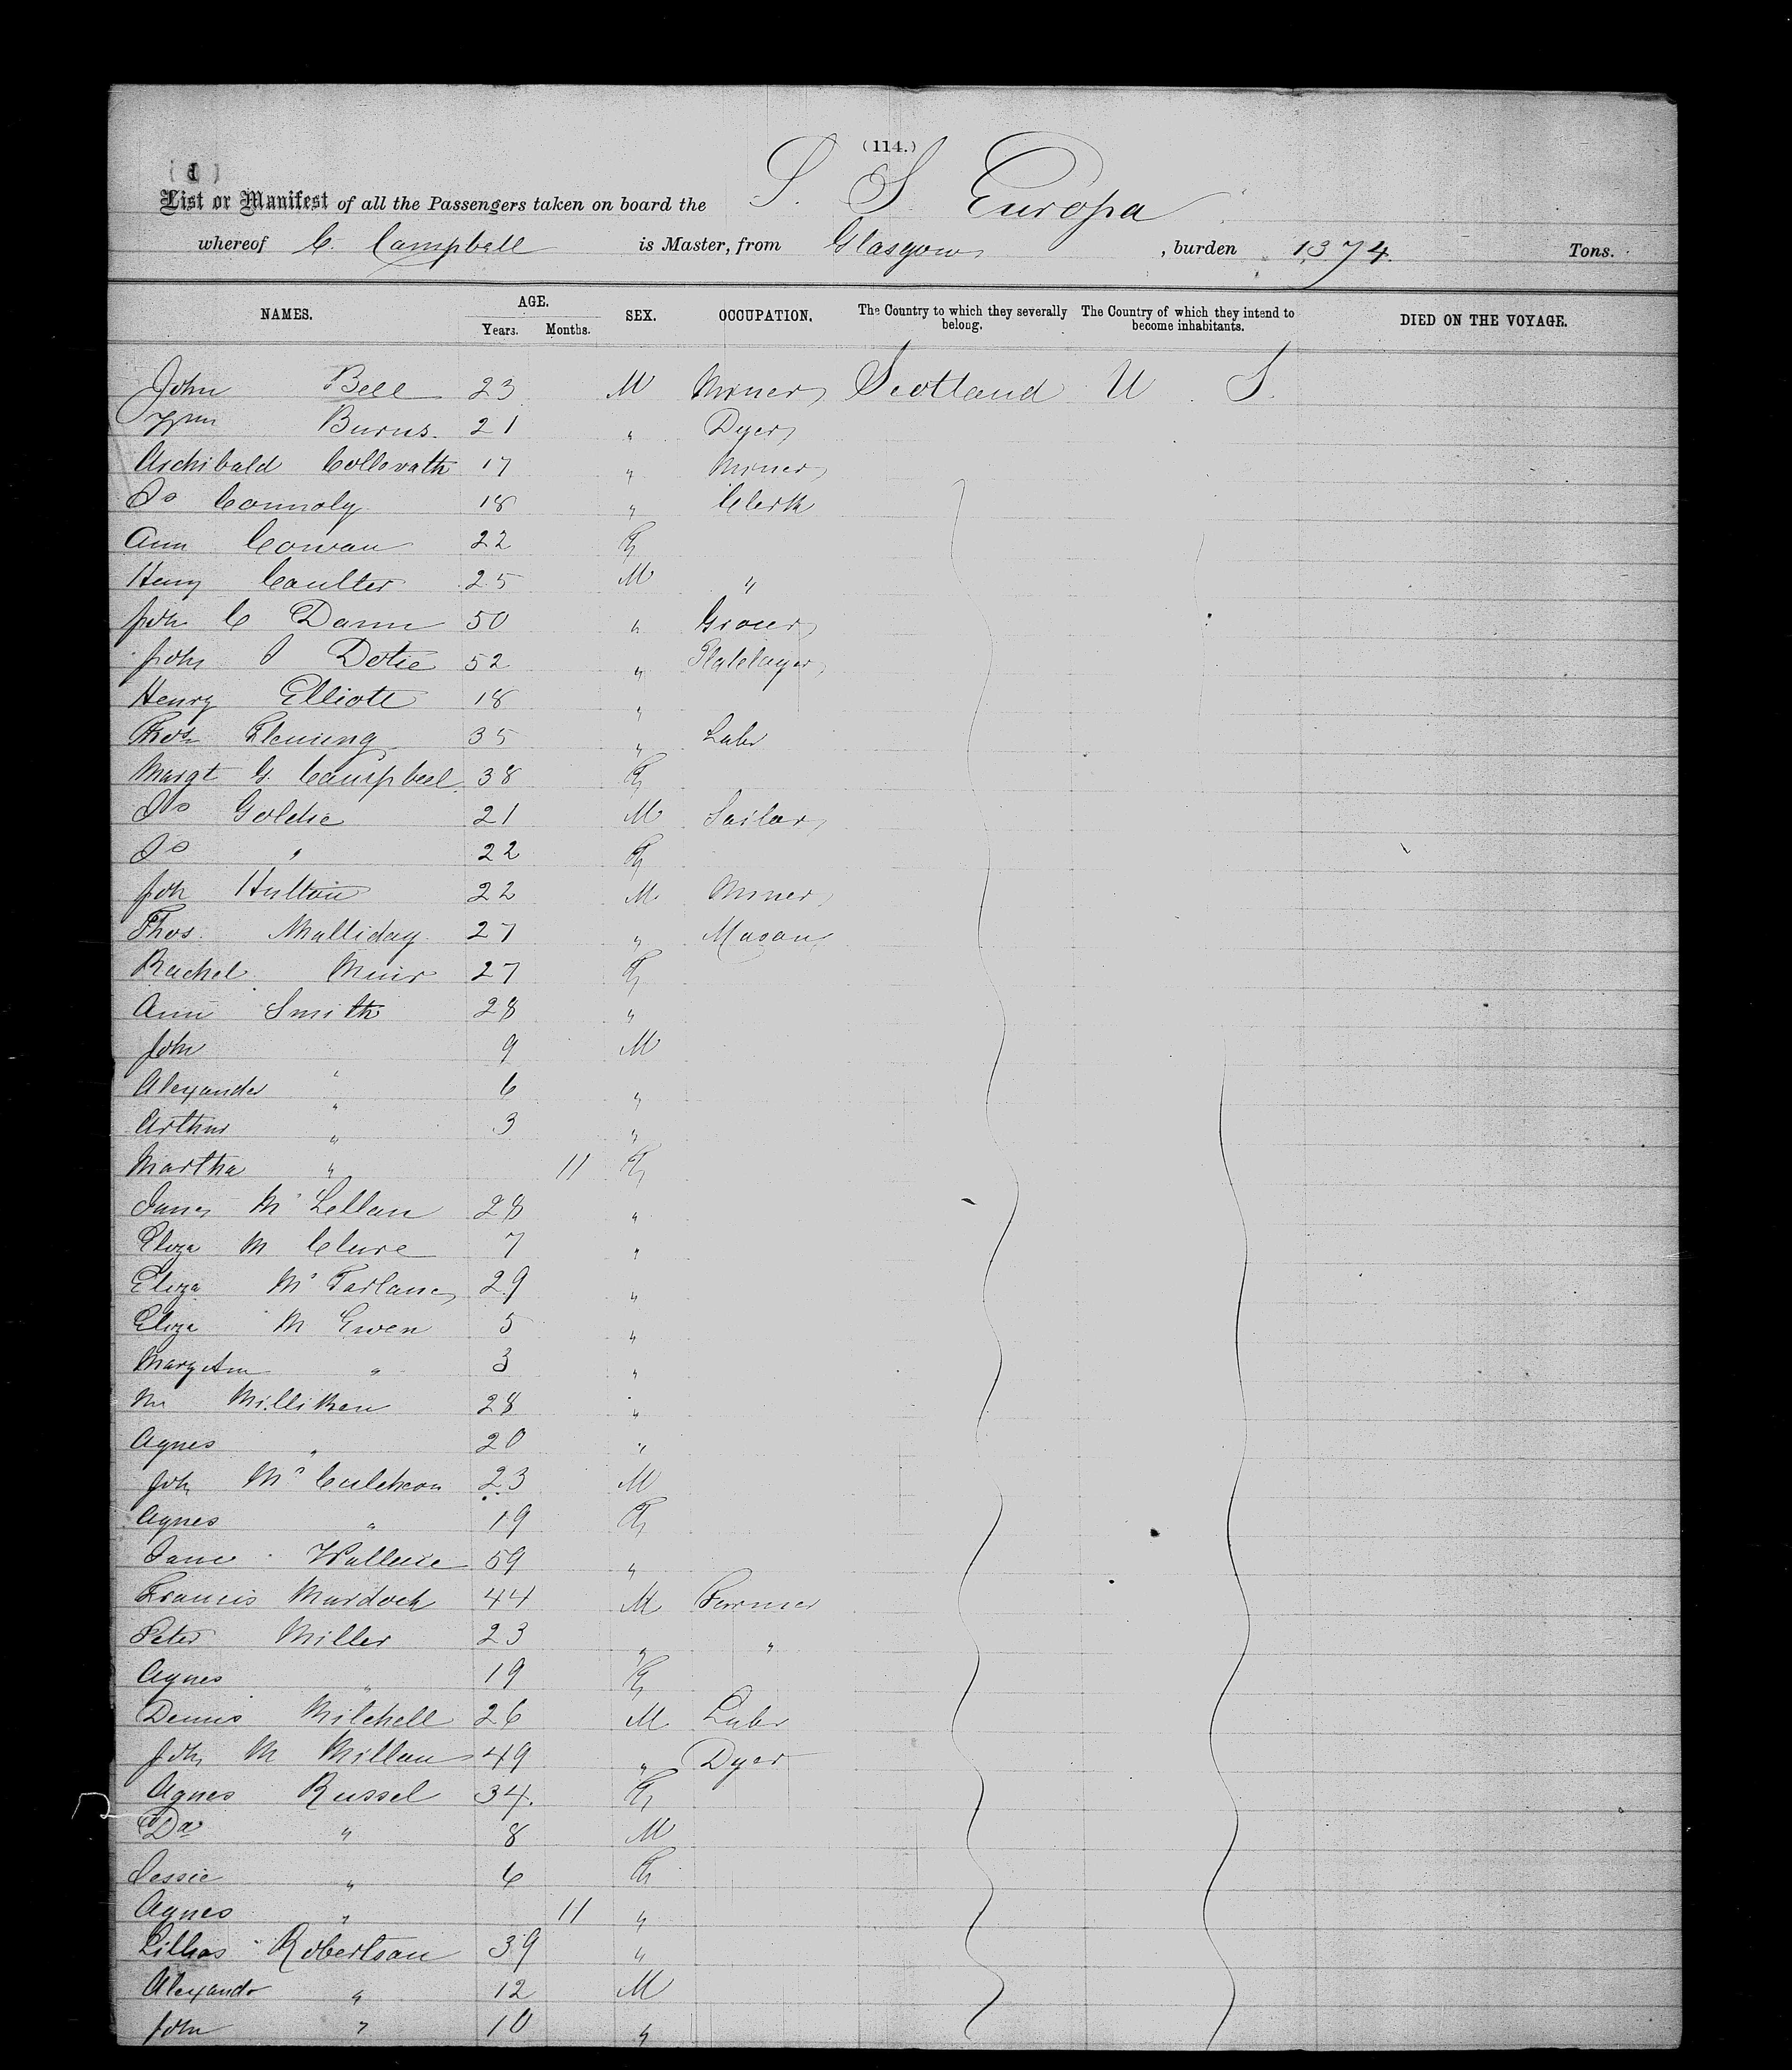 (114.)
( 1 )
List or Manifest of all the Passengers taken on board the S. S Europa
whereof C. Campbell is Master, from Glasgow , burden 1374. Tons.
NAMES. AGE. SEX. OCCUPATION. The Country to which they severally belong. The Country of which they intend to become inhabitants. DIED ON THE VOYAGE.
Years. Months.
John Bell 23 M Miner Scotland U S.
Wm Burns. 21 " Dyer
Archibald 17 " Miner
Jo Connoly 18 " Clerk
Ann Cowan 22 F
Henry Coulter 25 M "
Joh C Dann 50 " Grocer
John Dotie 52 " Platelayer
Henry Elliott 18 "
Thos Fleming 35 " Labr
Margt G. Campbell 38 F
Jo Goldie 21 M Sailor
Jo " 22 F
Joh Hultan 22 M Miner
Thos. Malliday 27 " Mason
Rachel Muir 27 F
Ann Smith 28 "
John " 9 M
Alexander " 6 "
Arthur " 3 "
Martha " 11 F
Janes Mc Lellan 28 "
Eliza M Clure 7 "
Eliza Mc Farlane 29 "
Eliza M Ewen 5 "
Mary Ann " 3 "
Milliken 28 "
Agnes " 20 "
Joh Mc Cutcheon 23 M
Agnes " 19 F
Jane Wallace 59 "
Francis Murdoch 44 M Farmer
Peter Miller 23 " "
Agnes " 19 F
Dennis Mitchell 26 M Labr
Joh M Millan 49 " Dyer
Agnes Russel 34. F
Da " 8 M
Jessie " 6 F
Agnes " 11 "
Lillias Robertson 39 "
Alexander " 12 M
John " 10 "